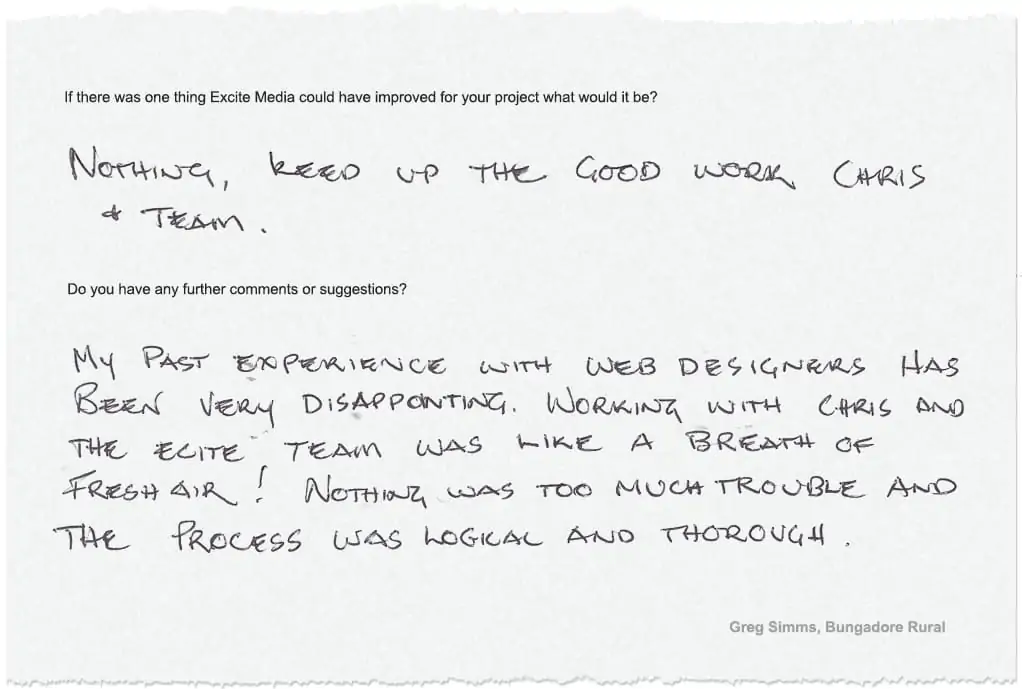 If there was one thing Excite Media could have improved for your project what would it be?
NOTHING, KEEP UP THE GOOD WORK CHRIS
+ TEAM.
Do you have any further comments or suggestions?
MY PAST EXPERIENCE WITH WEB DESIGNERS HAS
BEEN VERY DISAPPONTING. WORKING WITH CHRIS AND
THE ECITE TEAM WAS LIKE A BREATH OF
FRESH AIR! NOTHING WAS TOO MUCH TROUBLE AND
THE PROCESS WAS LOGICAL AND THOROUGH.
Greg Simms, Bungadore Rural